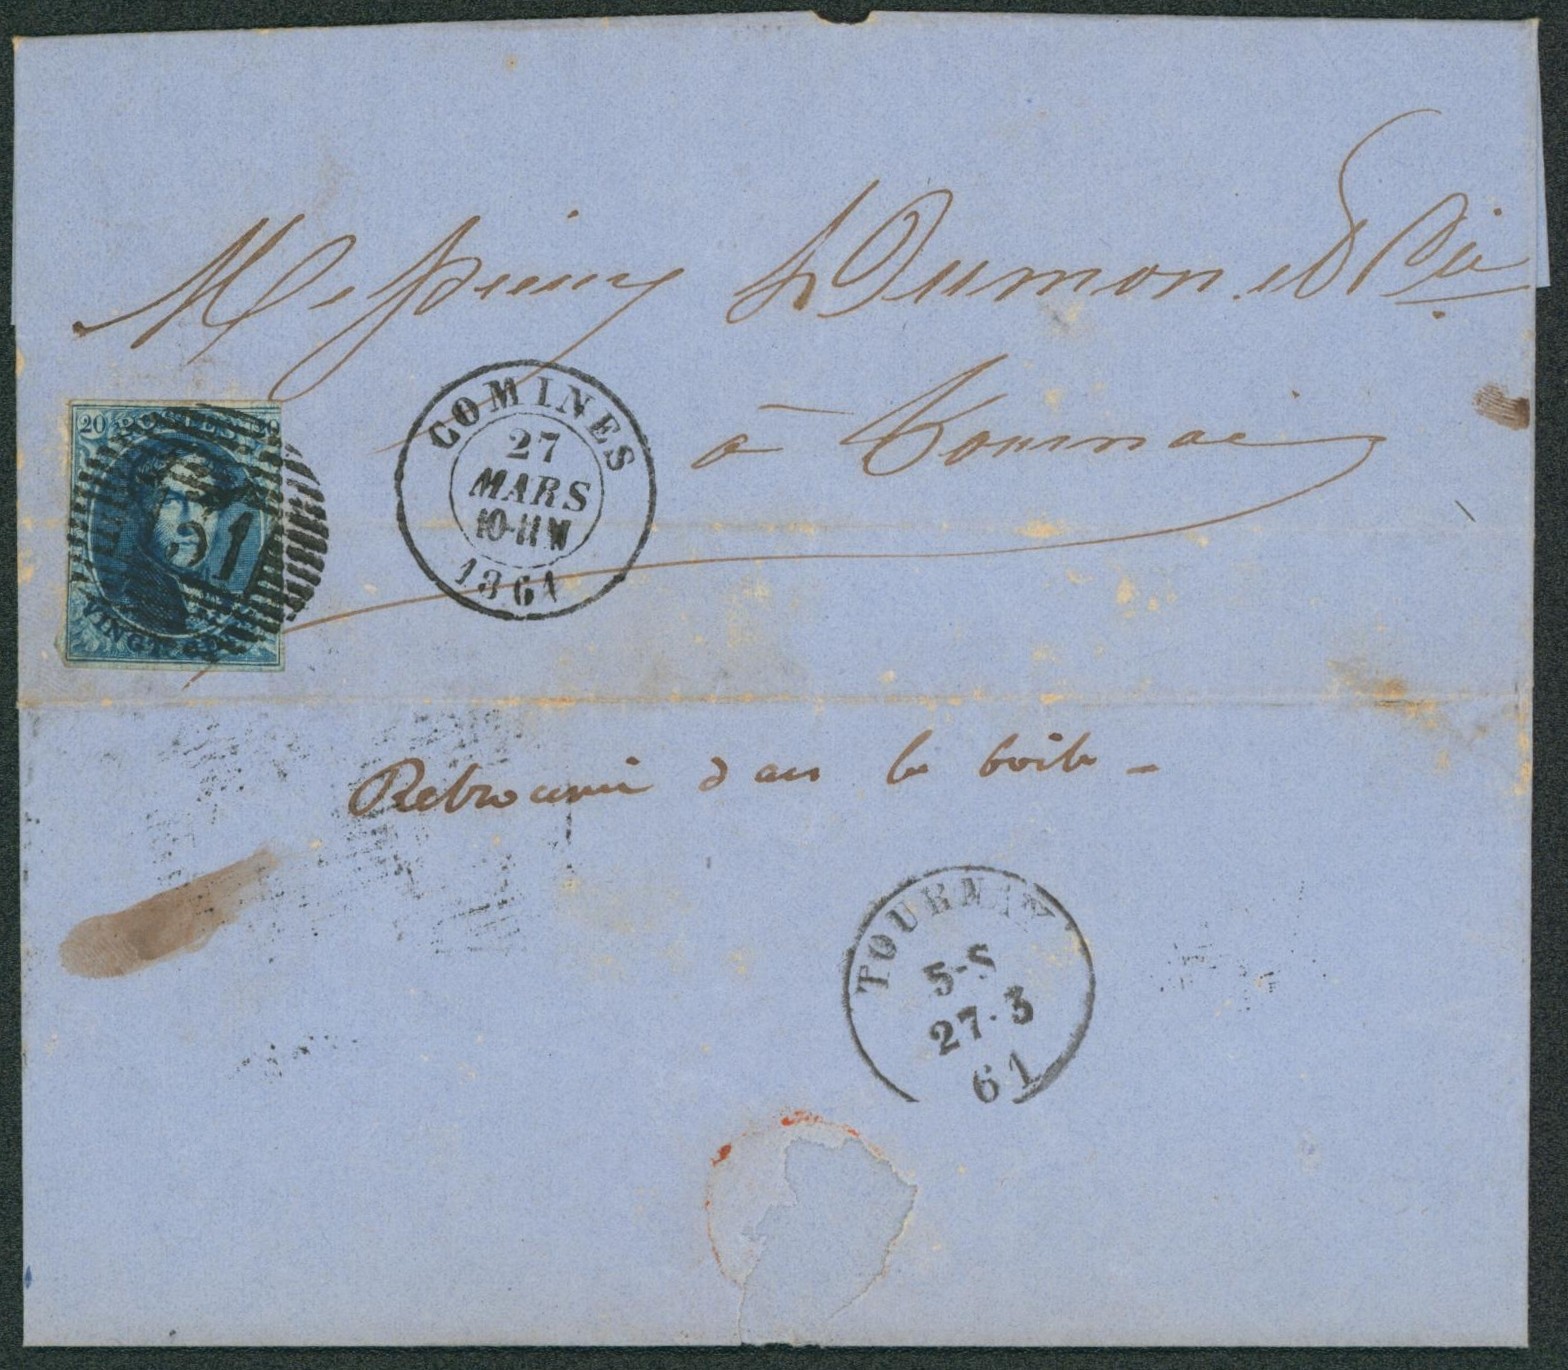 Messieurs L Dumon et Cie
à Tournai
20
COMINES
27
MARS
10-11 M
1861
Retrouvée dans la boîte -
TOURNAY
5-S
27-3
61